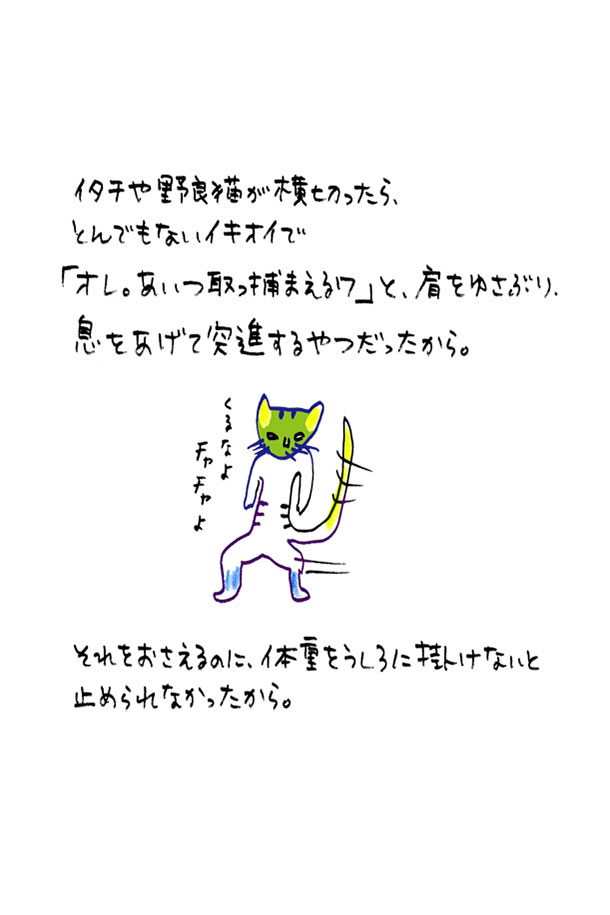 イタチや野良猫が横切ったら、
とんでもないイキオイで
「オレ。あいつ取っ捕まえるワ」と、肩をゆさぶり、
息をあげて突進するやつだったから。
くるなよ
チャチャよ
それをおさえるのに、体重をうしろに掛けないと
止められなかったから。